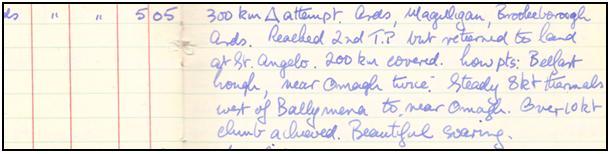 ds " " 5 05 300 km Δ attempt. Ards, Magilligan, Brookeborough
Ards. Reached 2nd T.P but returned to land
at St. Angelo. 200 km covered. low pts: Belfast
Lough, near Omagh twice. Steady 8kt thermals
west of Ballymena to near Omagh. Over 10kt
climb achieved. Beautiful soaring.